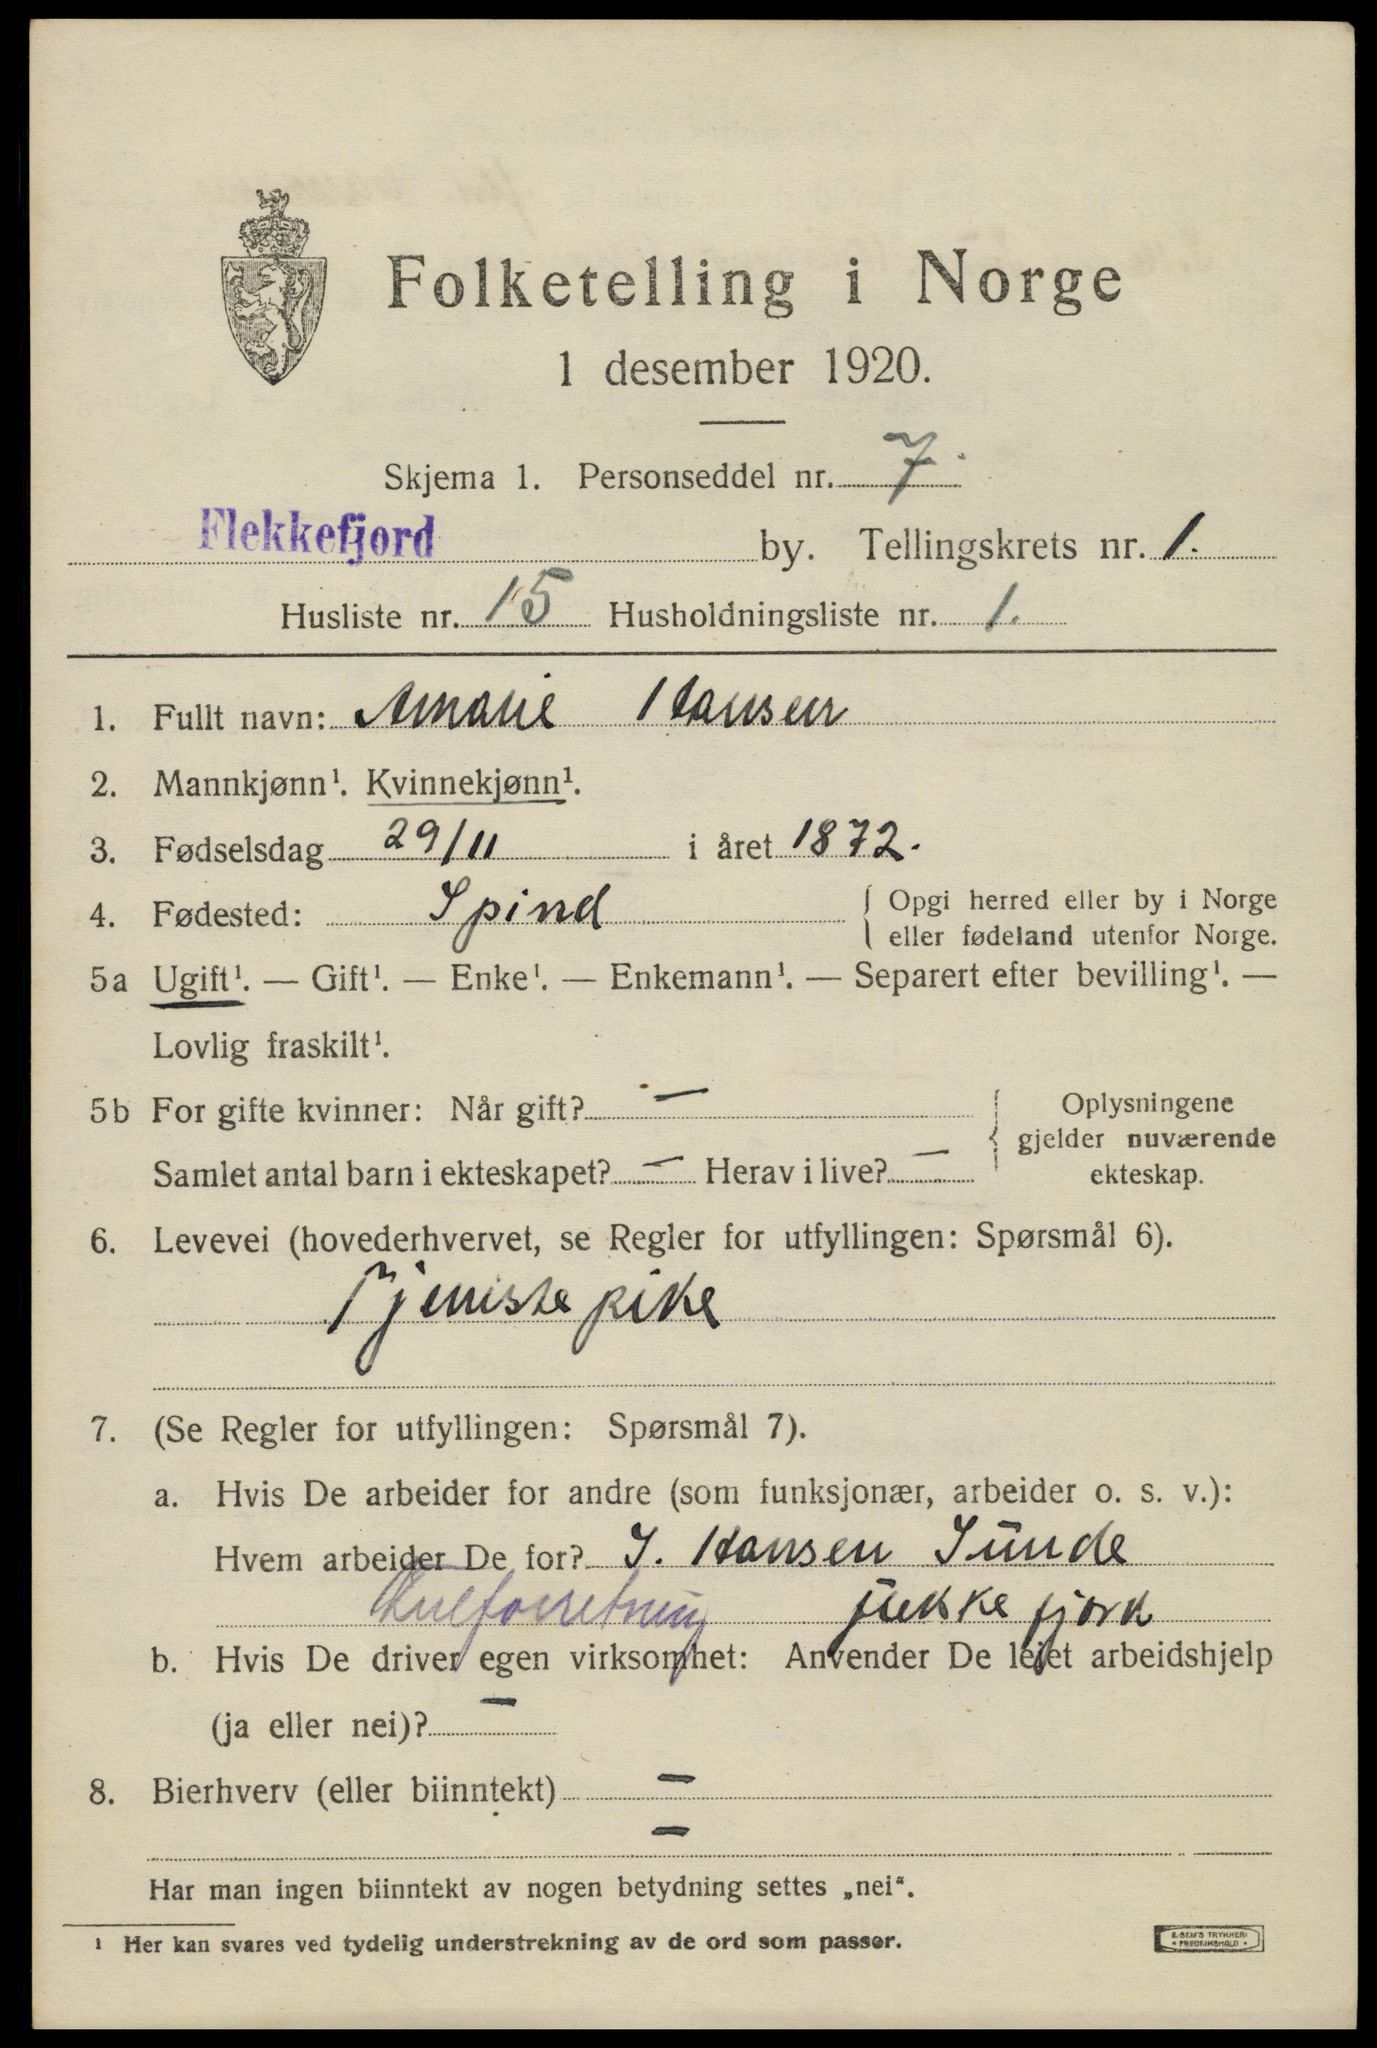 Folketelling i Norge
1 desember 1920.
Skjema 1. Personseddel nr. 7.
Flekkefjord by. Tellingskrets nr. 1.
Husliste nr. 15 Husholdningsliste nr. 1.
1. Fullt navn: Amalie Hansen
2. Mannkjønn¹. Kvinnekjønn¹.
3. Fødselsdag 29/11 i året 1872.
4. Fødested: Spind { Opgi herred eller by i Norge
eller fødeland utenfor Norge.
5a Ugift¹. — Gift¹. — Enke¹. — Enkemann¹. — Separert efter bevilling¹. —
Lovlig fraskilt¹.
5b For gifte kvinner: Når gift? —
Samlet antal barn i ekteskapet? — Herav i live? —
{ Oplysningene
gjelder nuværende
ekteskap.
6. Levevei (hovederhvervet, se Regler for utfyllingen: Spørsmål 6).
Tjeniste pike
7. (Se Regler for utfyllingen: Spørsmål 7).
a. Hvis De arbeider for andre (som funksjonær, arbeider o. s. v.):
Hvem arbeider De for? J. Hansen Sünde
flekkefjord
b. Hvis De driver egen virksomhet: Anvender De leiet arbeidshjelp
(ja eller nei)? —
8. Bierhverv (eller biinntekt) —
—
Har man ingen biinntekt av nogen betydning settes „nei“.
¹ Her kan svares ved tydelig understrekning av de ord som passer.
E. SEM'S TRYKKERI
• FREDRIKSHALD •